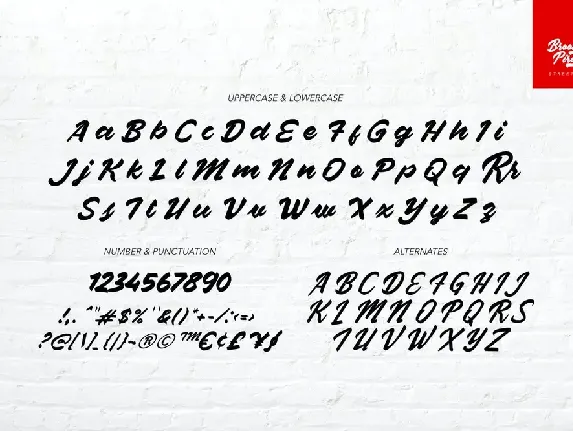 UPPERCASE & LOWERCASE
Aa Bb Cc Dd Ee Ff Gg Hh Ii
Jj Kk Ll Mm Nn Oo Pp Qq Rr
Ss Tt Uu Vv Ww Xx Yy Zz
NUMBER & PUNCTUATION
1234567890
ALTERNATES
ABCDEFGHIJ
KLMNOPQRS
TUVWXYZ